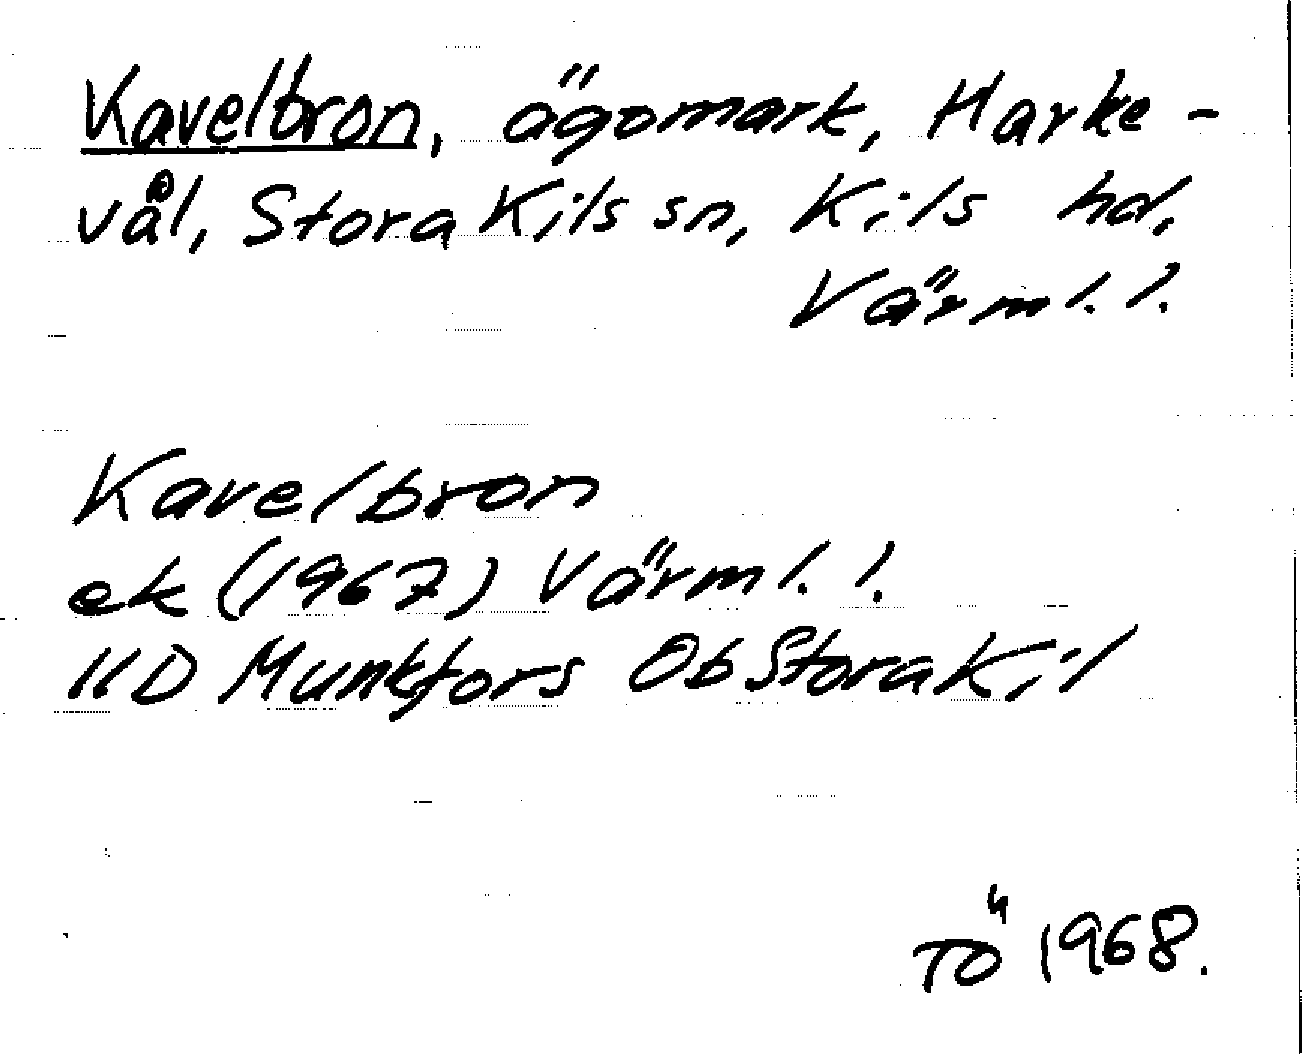 Kavelbron, ägomark, Harke-
vål, Stora Kils sn, Kils hd,
Värml. l.
Kavelbron
ek (1967) Värml. l.
11D Munkfors Ob Stora Kil
TÖ 1968.